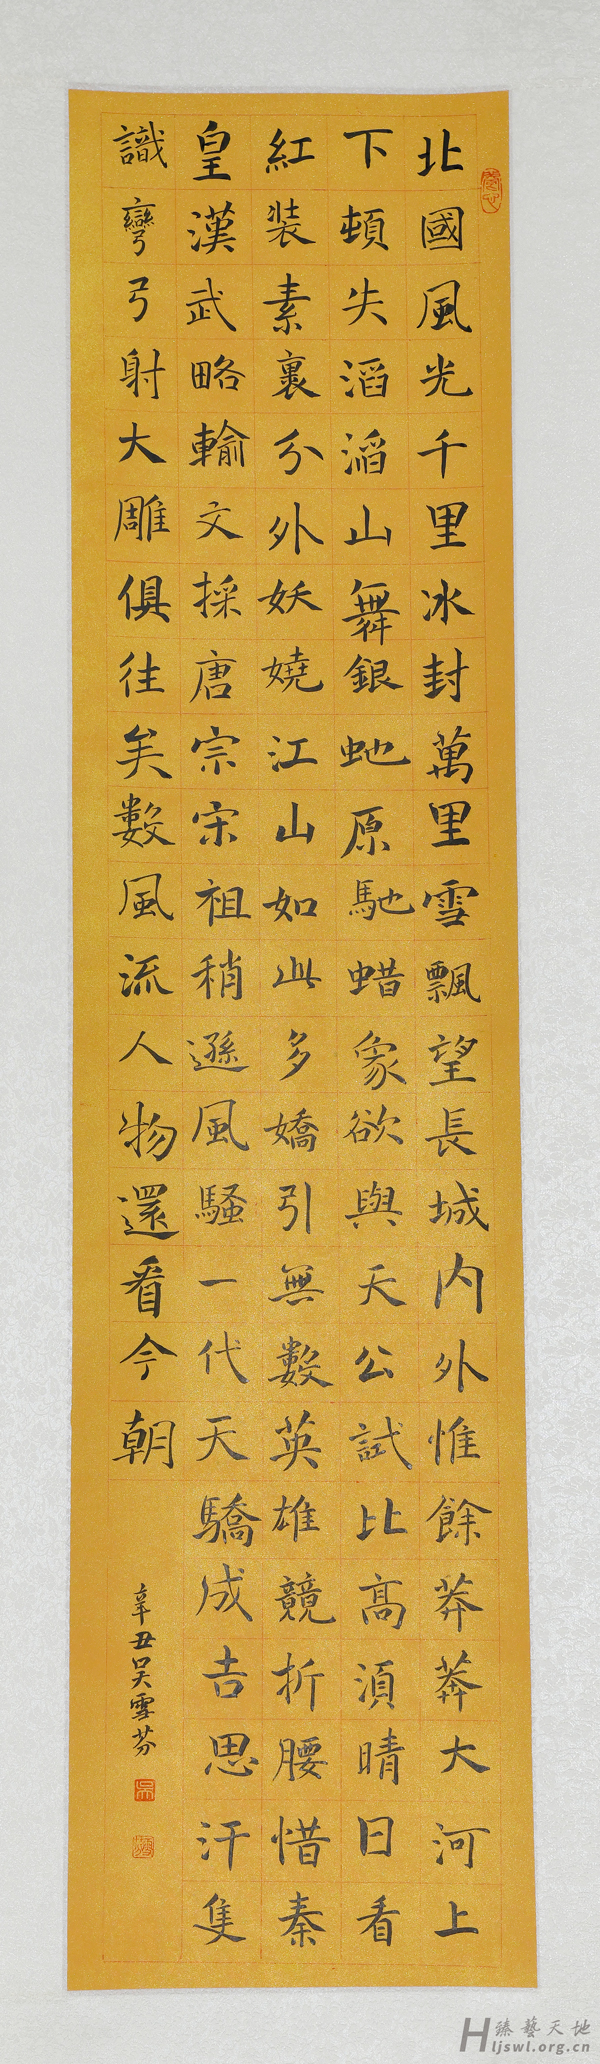 北國風光千里冰封萬里雪飄望長城内外惟餘莽莽大河上
下頓失滔滔山舞銀虵原馳蜡象欲與天公試比高須晴日看
紅装素裹分外妖嬈江山如此多嬌引無數英雄競折腰惜秦
皇漢武略輸文採唐宗宋祖稍遜風騷一代天驕成吉思汗隻
識彎弓射大雕俱往矣數風流人物還看今朝
辛丑吴雪芬
臻藝天地
Hljswl.org.cn